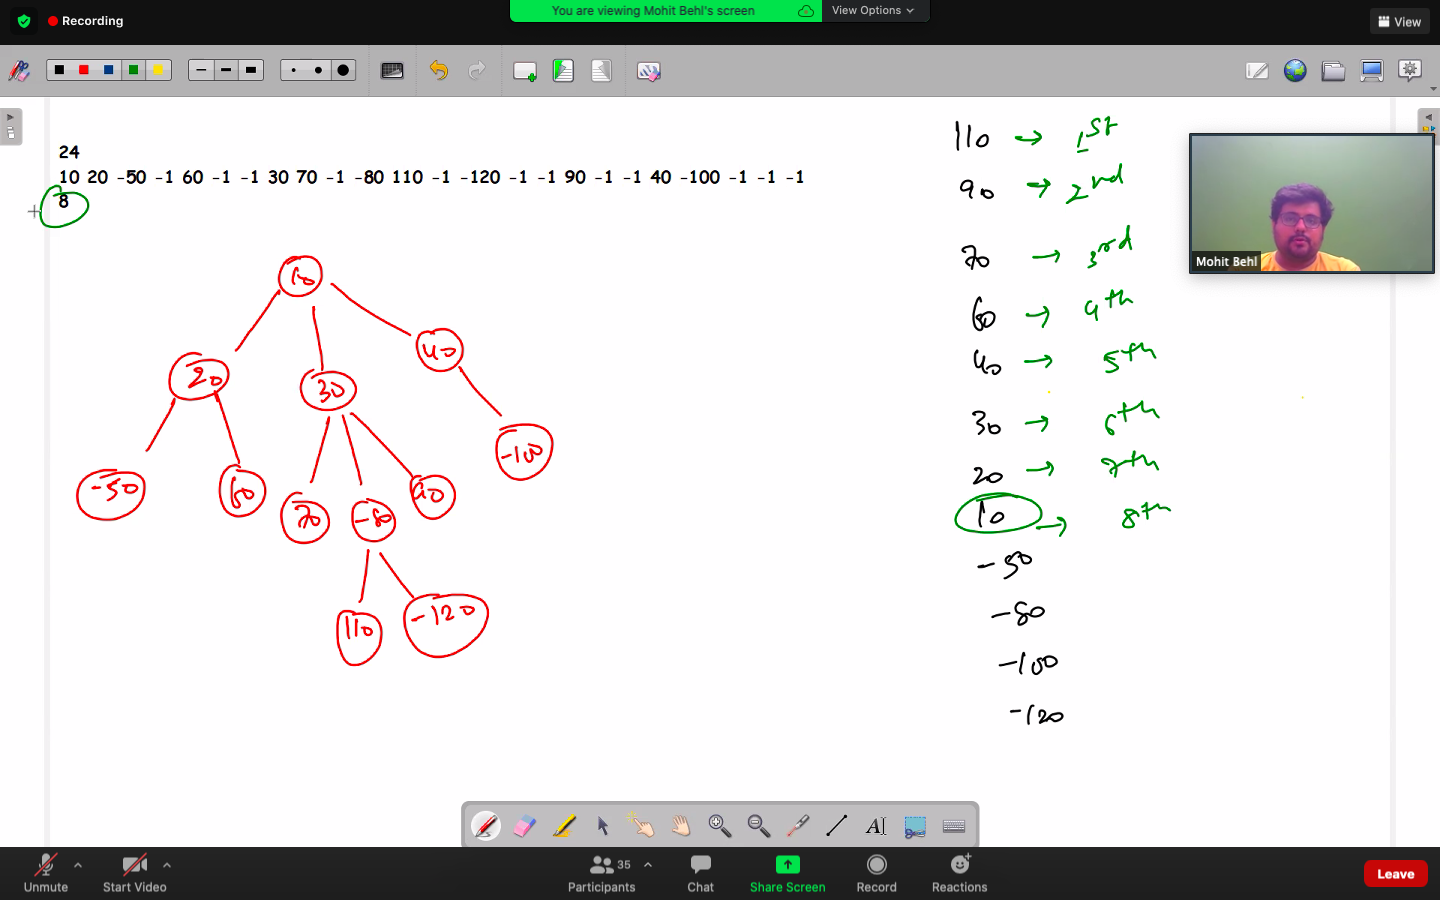 Recording
You are viewing Mohit Behl's screen
View Options
View
24
10 20 -50 -1 60 -1 -1 30 70 -1 -80 110 -1 -120 -1 -1 90 -1 -1 40 -100 -1 -1 -1
8
10
20 30 40
-50 60 70 -80 90 -100
110 -120
110 → 1st
90 → 2nd
70 → 3rd
60 → 4th
40 → 5th
30 → 6th
20 → 7th
10 → 8th
-50
-80
-100
-120
Mohit Behl
Unmute
Start Video
35
Participants
Chat
Share Screen
Record
Reactions
Leave